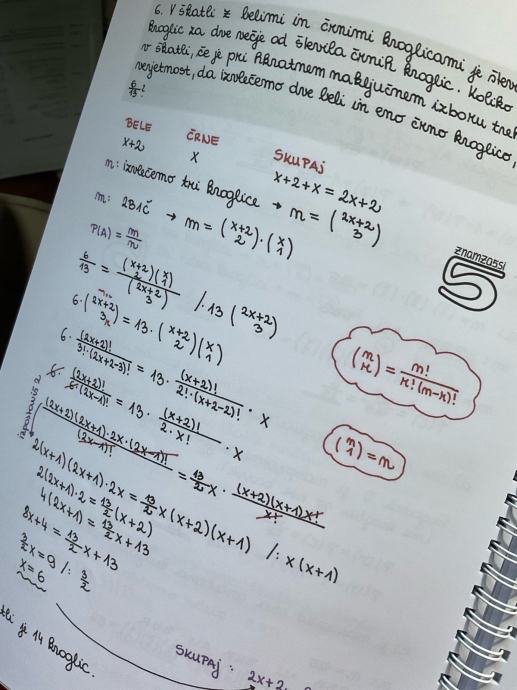 6. V škatli z belimi in črnimi kroglicami je
kroglic za dve večje od števila črnih kroglic. Koliko
v škatli, če je pri hkratnem naključnem izboru
verjetnost, da izvlečemo dve beli in eno črno kroglico,
6/13?
BELE ČRNE SKUPAJ
x+2 x x+2+x = 2x+2
n: izvlečemo tri kroglice → n = (2x+2 3)
m: 2B1Č → m = (x+2 2)·(x 1)
P(A) = m/n
6/13 = (x+2 2)(x 1)/(2x+2 3) /·13 (2x+2 3)
6·(2x+2 3) = 13·(x+2 2)(x 1)
6·(2x+2)!/3!·(2x+2-3)! = 13·(x+2)!/2!·(x+2-2)!·x
6·(2x+2)!/6·(2x-1)! = 13·(x+2)!/2·x!·x
izpostaviš 2
(2x+2)(2x+1)·2x·(2x-1)!/(2x-1)! = 13/2 x·(x+2)(x+1)x!/x!
2(x+1)(2x+1)·2x = 13/2 x(x+2)(x+1) /: x(x+1)
2(2x+1)·2 = 13/2 (x+2)
4(2x+1) = 13/2 x+13
8x+4 = 13/2 x+13
3/2 x = 9 /: 3/2
x = 6
je 14 kroglic.
SKUPAJ: 2x+2
znamza5si
5
(n r) = n!/r!(n-r)!
(n 1) = n